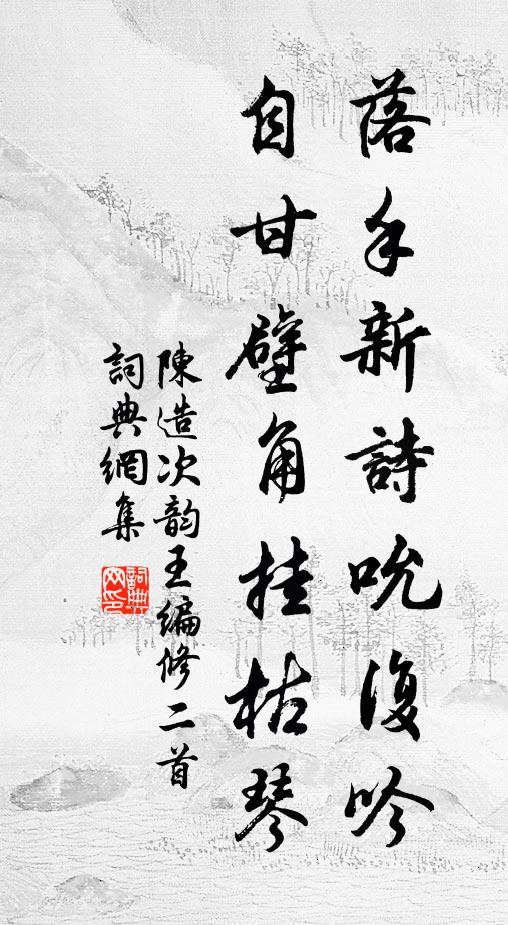 落手新詩吮復吟
自甘壁角挂枯琴
陳造次韵王編修二首
詞典網集
詞典网印